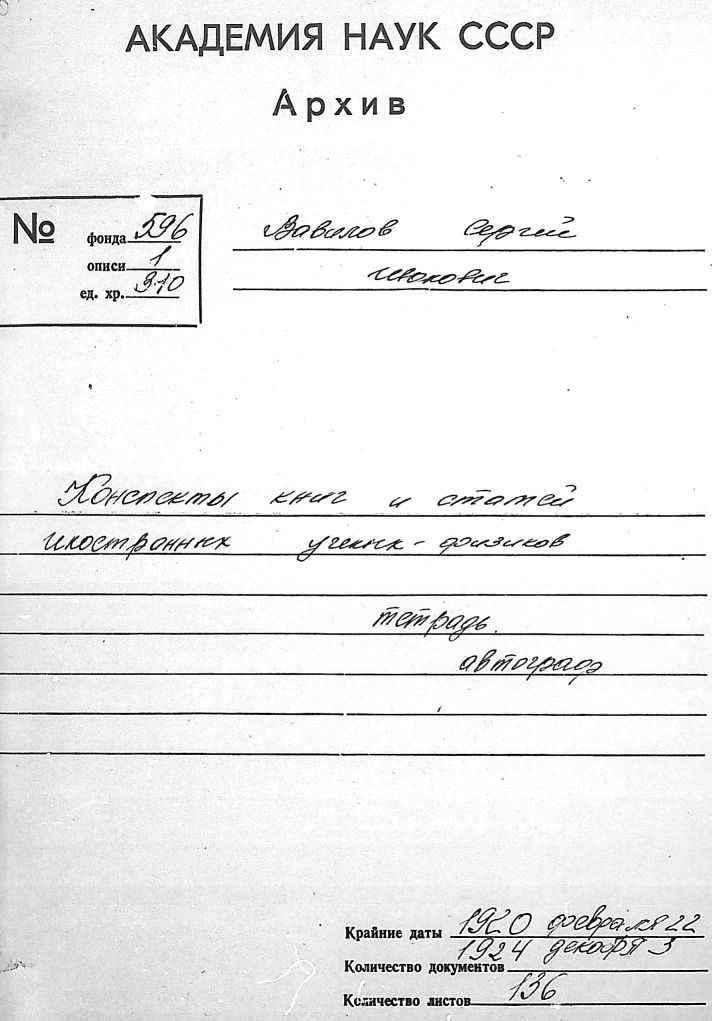 АКАДЕМИЯ НАУК СССР
Архив
№ фонда 596
описи 1
ед. хр. 310
Вавилов Сергей
Иванович
Конспекты книг и статей
иностранных ученых-физиков
тетрадь.
автограф
Крайние даты 1920 февраля 22
1924 декабря 3
Количество документов
Количество листов 136